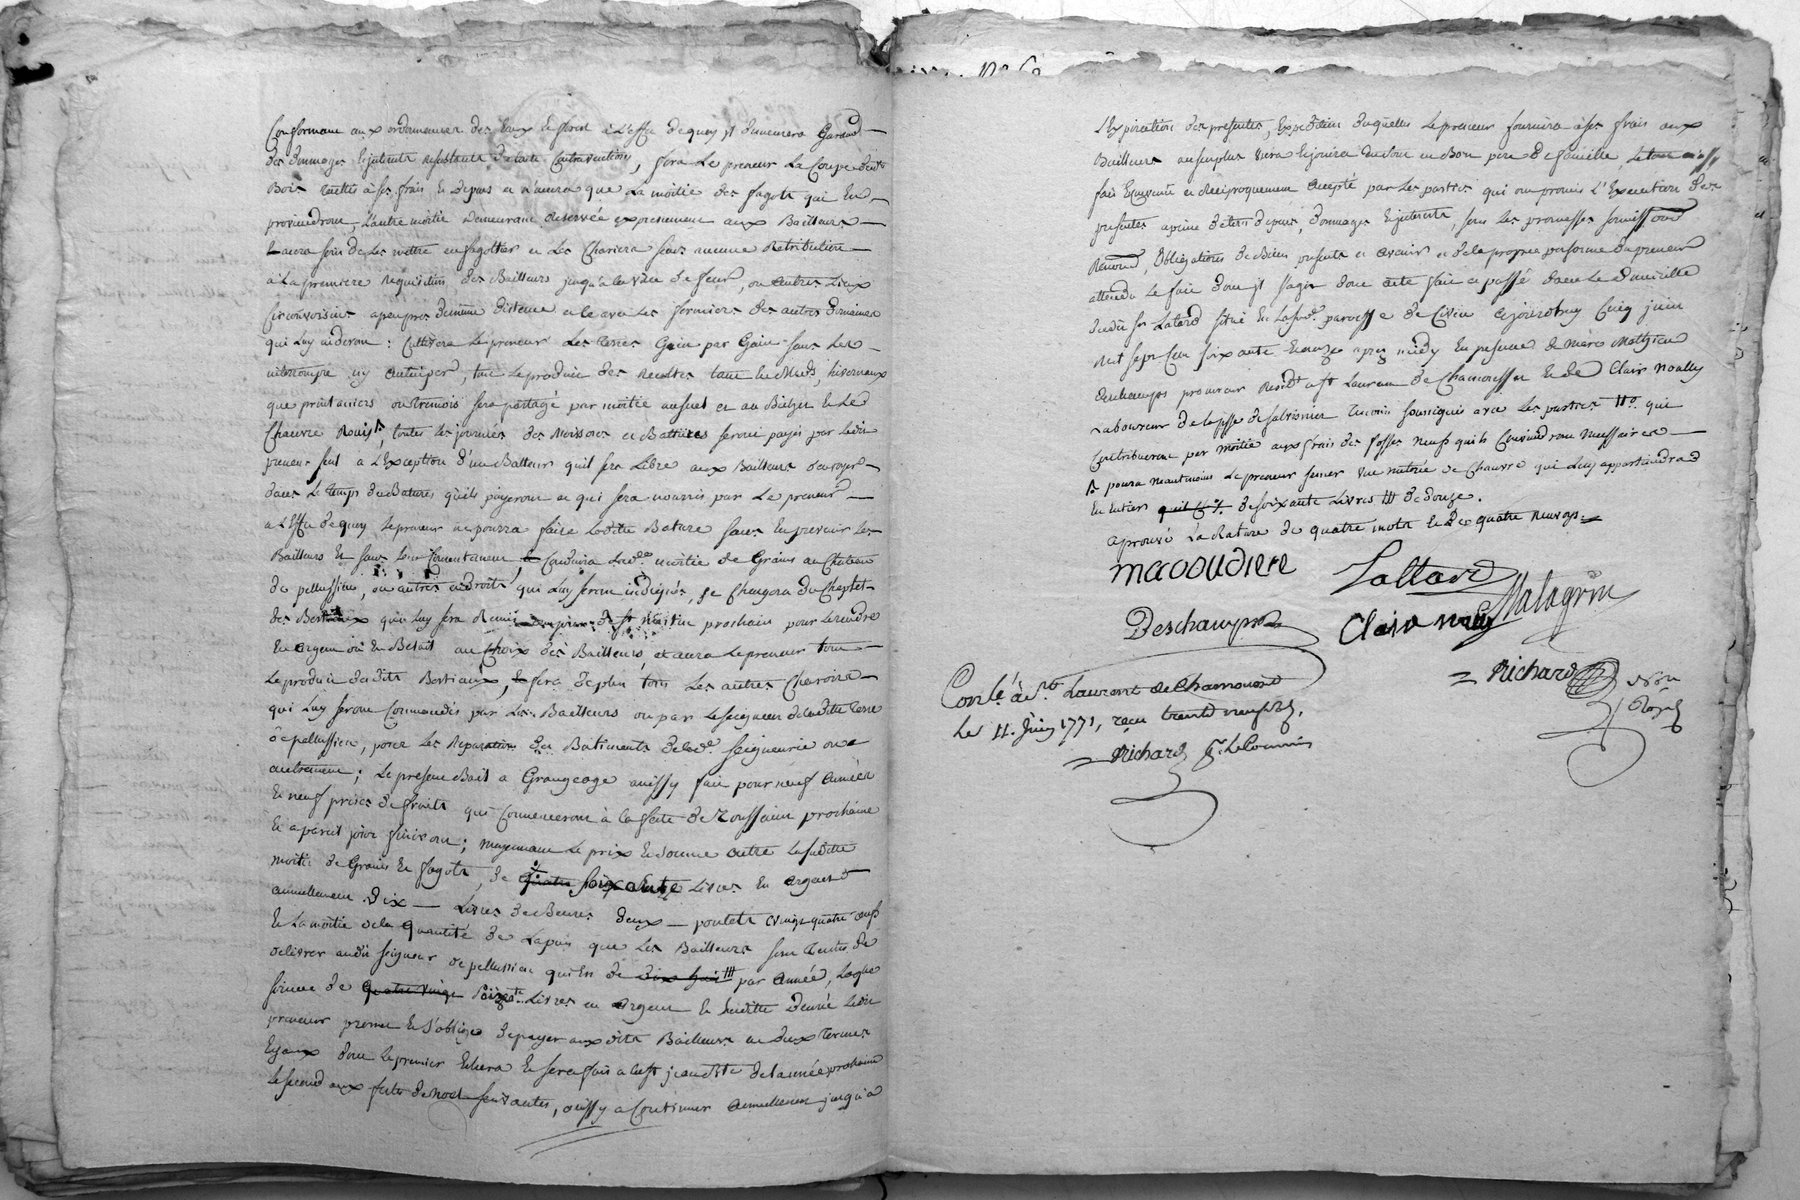 Conformant aux ordonnances des Eaux et forest à l'effet de quoy il demeurera Garand
des dommages Et jnterets resultants de la contravention, fera Le preneur La Coupe dud.
Bois à ses frais et depens et n'aura que La moitié des fagots qui En
proviendront, L'autre moitié Demeurant reservée expressement aux Bailleurs
Et aura soin de Les mettre en fagotter et Les Chariera sans aucune Retribution
a La premiere requisition des Bailleurs jusqu'a la ville de feur, ou autres Lieux
Circonvoisins a peu pres de même distance avec Les fermiers des autres domaines
qui Luy aideront : Cultivera Le preneur Les Terres Gain par Gain sans Les
interrompre ny anticiper, tout Le produit des recoltes tant En Bleds, hivernaux
que printaniers ou Tremois sera partagé par moitié et au Bichet Et Le
Chanvre , toutes Les journées des Moissons et Battures seront payés par Ledit
preneur seul a L'Exception d'un Batteur qu'il sera Libre aux Bailleurs d'envoyer
dans Le Temps des Batures qu'ils payeront et qui sera nourris par Le preneur
a L'effet de quoy Le preneur ne pourra faire Ladite Bature sans En prevenir Les
Bailleurs Et sans Leur Consentement, Conduira Lad.e moitié de Grains au Chateau
de pellussieu, ou autres endroits qui Luy seront indiqués, se Chargera du Cheptel
des Bestiaux qui Luy sera Remis prochain pour Le rendre
En argent où En Betail au Choix des Bailleurs, et aura Le preneur tout
Le produit desdits Bestiaux, fera de plus tous Les autres Charrois
qui Luy seront Commandés par Les Bailleurs ou par Le seigneur de Ladite Terre
de pellussieu, pour Les Reparations des Batiments de lad.e seigneurie ou
autrement ; Le present Bail a Grangeage aussy fait pour neuf années
Et neuf prises de fruits qui Commenceront à la fete de Toussaint prochaine
Et a pareil jour finiront ; moyennant Le prix Et somme outre La susditte
moitié de Grains Et fagots, de quatre soixante Livres En argent
annuellement Dix — Livres de Beurre deux — poulets vingt quatre œufs
Et La moitié de la quantité de Lapins que Les Bailleurs sont Tenus de
delivrer audit seigneur de pellussieu qui Est de dix huit par année, Laquelle
somme de quatre vingt soixante Livres en argent Et susditte Denrée Ledit
preneur promet Et s'oblige de payer aux dits Bailleurs en deux Termes
Egaux dont Le premier Echera Et se fera a la st jean Bte de L'année prochaine
Le second aux fetes de Noel suivantes, aussy a Continuer annuellement jusqu'à
L'Expiration des presentes, Expedition desquelles Le preneur fournira à ses frais aux
Bailleurs au surplus vivra Et jouira du tout en Bon pere de famille, Le tout ainsi
fait Convenu et Reciproquement accepté par Les parties qui ont promis L'Execution des
presentes a peine de tous depens, dommages Et jnterets, sous les promesses soumissions
Renonc., obligations de Biens presents et avenir et de la propre personne du preneur
attendu Le fait dont il s'agit dont acte fait et passé dans Le Domicille
dudit Sr Latard situé En La susd. paroisse de Civen cejourdhuy Cinq juin
mil sept Cent soixante Et onze apres midy En presence de Marc Mathieu
Deschamps procureur Resid.t a St Laurent de Chamousset Et de Clair Noally
Laboureur de la psse de Salvisinet Temoins soussignés avec Les parties # qui
Contribueront par moitié aux frais des fosses neufs qu'ils Conviendront Necessaires
& poura neantmoins Le preneur semer une metrée de Chanvre qui Luy appartiendra
En Entier de soixante Livres ### de douze.
aprouvé La Rature de quatre mots Et De quatre Renvoys.
Macoudiere Lattard Malagrin
Deschamps Clair noally
Richard Nore Royal
Con.lé à St. Laurent de Chamousset
Le 11. Juin 1771, reçu trente neuf s.
Richard p.r Le Commis